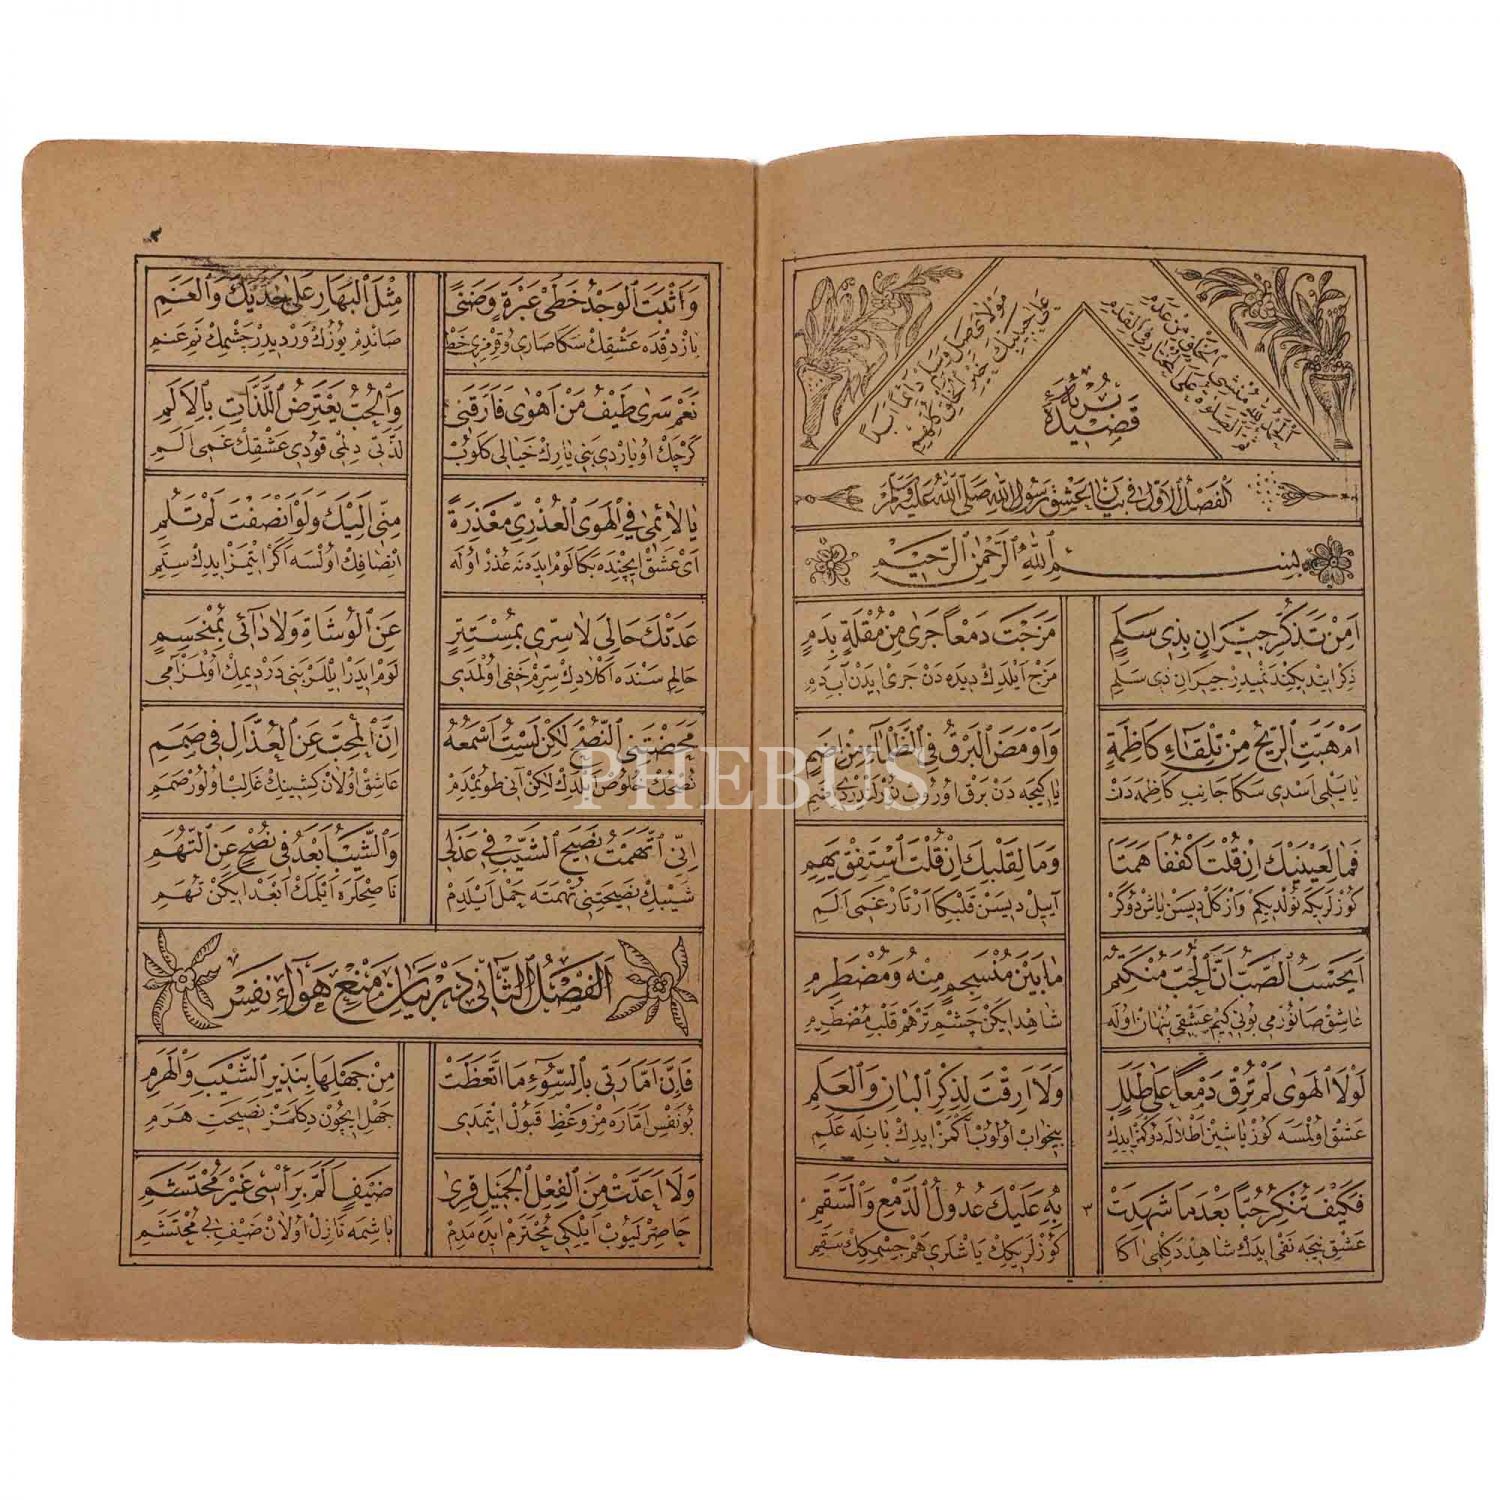 قصيدۀ
بُرْدَه
اَلْحَمْدُ لِلّٰهِ مُنْشِی الْخَلْقِ مِنْ عَدَمِ
ثُمَّ الصَّلٰوةُ عَلَى الْمُخْتَارِ فِي الْقِدَمِ
مَوْلَایَ صَلِّ وَسَلِّمْ دَائِمًا اَبَدًا
عَلٰى حَبِيبِكَ خَيْرِ الْخَلْقِ كُلِّهِمِ
اَلْفَصْلُ الْاَوَّلُ فِى بَيَانِ عَشْقِ رَسُولِ اللّٰهِ صَلَّى اللّٰهُ عَلَيْهِ وَسَلَّمَ
بِسْمِ اللّٰهِ الرَّحْمٰنِ الرَّحِيمِ
اَمِنْ تَذَكُّرِ جِيرَانٍ بِذِى سَلَمٍ مَزَجْتَ دَمْعًا جَرٰى مِنْ مُقْلَةٍ بِدَمٍ
ذكر ايدوبكند‌ميدر جيران ذى سلم مزج ايلدك ديده دن جرى ايدن آبه دم
اَمْ هَبَّتِ الرِّيحُ مِنْ تِلْقَاءِ كَاظِمَةٍ وَاَوْمَضَ الْبَرْقُ فِى الظَّلْمَاءِ مِنْ اِضَمِ
يا يلمى اسدى سكا جانب كاظمه دن
فَمَا لِعَيْنَيْكَ اِنْ قُلْتَ اكْفُفَا هَمَتَا وَمَا لِقَلْبِكَ اِنْ قُلْتَ اسْتَفِقْ يَهِمِ
كوزلريكه نولدى كيم واز كل ديسن ياش دوكر آييل ديسن قلبكا ارتار غمى الم
اَيَحْسَبُ الصَّبُّ اَنَّ الْحُبَّ مُنْكَتِمٌ مَا بَيْنَ مُنْسَجِمٍ مِنْهُ وَمُضْطَرِمِ
عاشق صانورمى بونى كيم عشقى پنهان اوله شاهد ايكن چشم ترهم قلب مضطرم
لَوْلَا الْهَوٰى لَمْ تُرِقْ دَمْعًا عَلٰى طَلَلٍ وَلَا اَرِقْتَ لِذِكْرِ الْبَانِ وَالْعَلَمِ
عشق اولمسه كوز ياشين اطلاله دوكمز ايدك بيخواب اولوب اكمز ايدك بانله علم
فَكَيْفَ تُنْكِرُ حُبًّا بَعْدَ مَا شَهِدَتْ ٣ بِهِ عَلَيْكَ عُدُولُ الدَّمْعِ وَالسَّقَمِ
عشق نيجه نفى ايدك شاهد دكلمى اكا كوزلريكك ياشلرى هم جسمكك سقم
وَاَثْبَتَ الْوَجْدُ خَطَّىْ عَبْرَةٍ وَضَنًى مِثْلَ الْبَهَارِ عَلٰى خَدَّيْكَ وَالْعَنَمِ
يازدى خده عشقك سكا صارى وقرمزى خط صاندم يوزك ورديدر چشمك نم عنم
نَعَمْ سَرٰى طَيْفُ مَنْ اَهْوٰى فَاَرَّقَنِى وَالْحُبُّ يَعْتَرِضُ اللَّذَّاتِ بِالْاَلَمِ
كرچك اوياردى بنى يارك خيالى كلوب لذتى دلمى قودى عشقك غمى الم
يَا لَائِمِى فِى الْهَوَى الْعُذْرِىِّ مَعْذِرَةً مِنِّى اِلَيْكَ وَلَوْ اَنْصَفْتَ لَمْ تَلُمِ
اى عشق ايچنده بكا لوم ايده نه عذر اوله انصافك اولسه اكر ايتمز ايدك ستم
عَدَتْكَ حَالِىَ لَا سِرِّى بِمُسْتَتِرٍ عَنِ الْوُشَاةِ وَلَا دَائِى بِمُنْحَسِمِ
حالم سنده اكلادك سرم خفى اولمدى لوم ايدر ايللر بنى درديمك اولمز امى
مَحَضْتَنِى النُّصْحَ لٰكِنْ لَسْتُ اَسْمَعُهُ اِنَّ الْمُحِبَّ عَنِ الْعُذَّالِ فِى صَمَمِ
نصحك خلوص ايلدك لكن آنى طويمدم عاشق اولان كشينك غالبا اولور صمم
اِنِّى اتَّهَمْتُ نَصِيحَ الشَّيْبِ فِى عَذَلِى وَالشَّيْبُ اَبْعَدُ فِى نُصْحٍ عَنِ التُّهَمِ
شيبك نصيحتنى تهمته حمل ايلدم ناصحلره ايلمك ابعد ايكن تهم
اَلْفَصْلُ الثَّانِى دَرْ بَيَانِ مَنْعِ هَوَاءِ نَفْسٍ
فَاِنَّ اَمَّارَتِى بِالسُّوءِ مَا اتَّعَظَتْ مِنْ جَهْلِهَا بِنَذِيرِ الشَّيْبِ وَالْهَرَمِ
بو نفس اماره مز وعظ قبول ايتمدى جهل ايچون دكلمز نصيحت هرم
وَلَا اَعَدَّتْ مِنَ الْفِعْلِ الْجَمِيلِ قِرٰى ضَيْفٍ اَلَمَّ بِرَأْسِى غَيْرَ مُحْتَشِمِ
حاضرليوب ايلكى محترم ايده مدم باشمه نازل اولان ضيف بى محتشم
PHEBUS